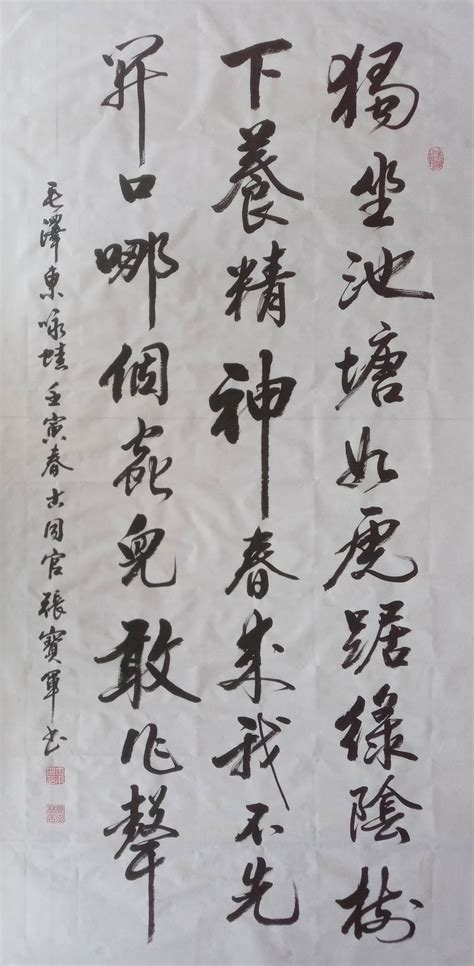 獨坐池塘如虎踞綠陰樹
下養精神春來我不先
開口哪個蟲兒敢作聲
毛澤東咏蛙壬寅春古同官張寶軍书